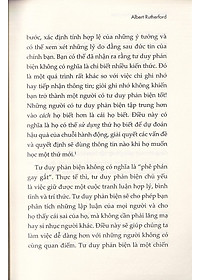 Albert Rutherford
bước, xác định tính hợp lệ của những ý tưởng và
có thể xem xét những lý do đằng sau đức tin của
chính bạn. Bạn có thể đã nhận ra rằng tư duy phản
biện không có nghĩa là chỉ biết nhiều kiến thức. Đó
là một quá trình rất khác so với việc chỉ ghi nhớ
hay tiếp nhận thông tin; giỏi ghi nhớ không khiến
bạn trở thành một người có tư duy phản biện tốt!
Những người có tư duy phản biện tập trung hơn
vào cách họ biết hơn là cái họ biết. Điều này có
nghĩa là họ có thể sử dụng thứ họ biết để dự đoán
hậu quả của chuỗi hành động, giải quyết các vấn đề
và quyết định sẽ dùng thông tin nào khi họ muốn
học một thứ mới.¹
Tư duy phản biện không có nghĩa là “phê phán
gay gắt”. Thực tế thì, tư duy phản biện chủ yếu
là việc giữ được một cuộc tranh luận hợp lý, bình
tĩnh và trí thức. Tư duy phản biện sẽ cho phép bạn
phân tích những lập luận của mọi người và cho
họ thấy cái sai của họ, mà không cần phải lăng mạ
hay sỉ nhục người khác. Điều này sẽ giúp chúng ta
làm việc dễ dàng hơn với những người không có
cùng quan điểm. Tư duy phản biện là một chiến